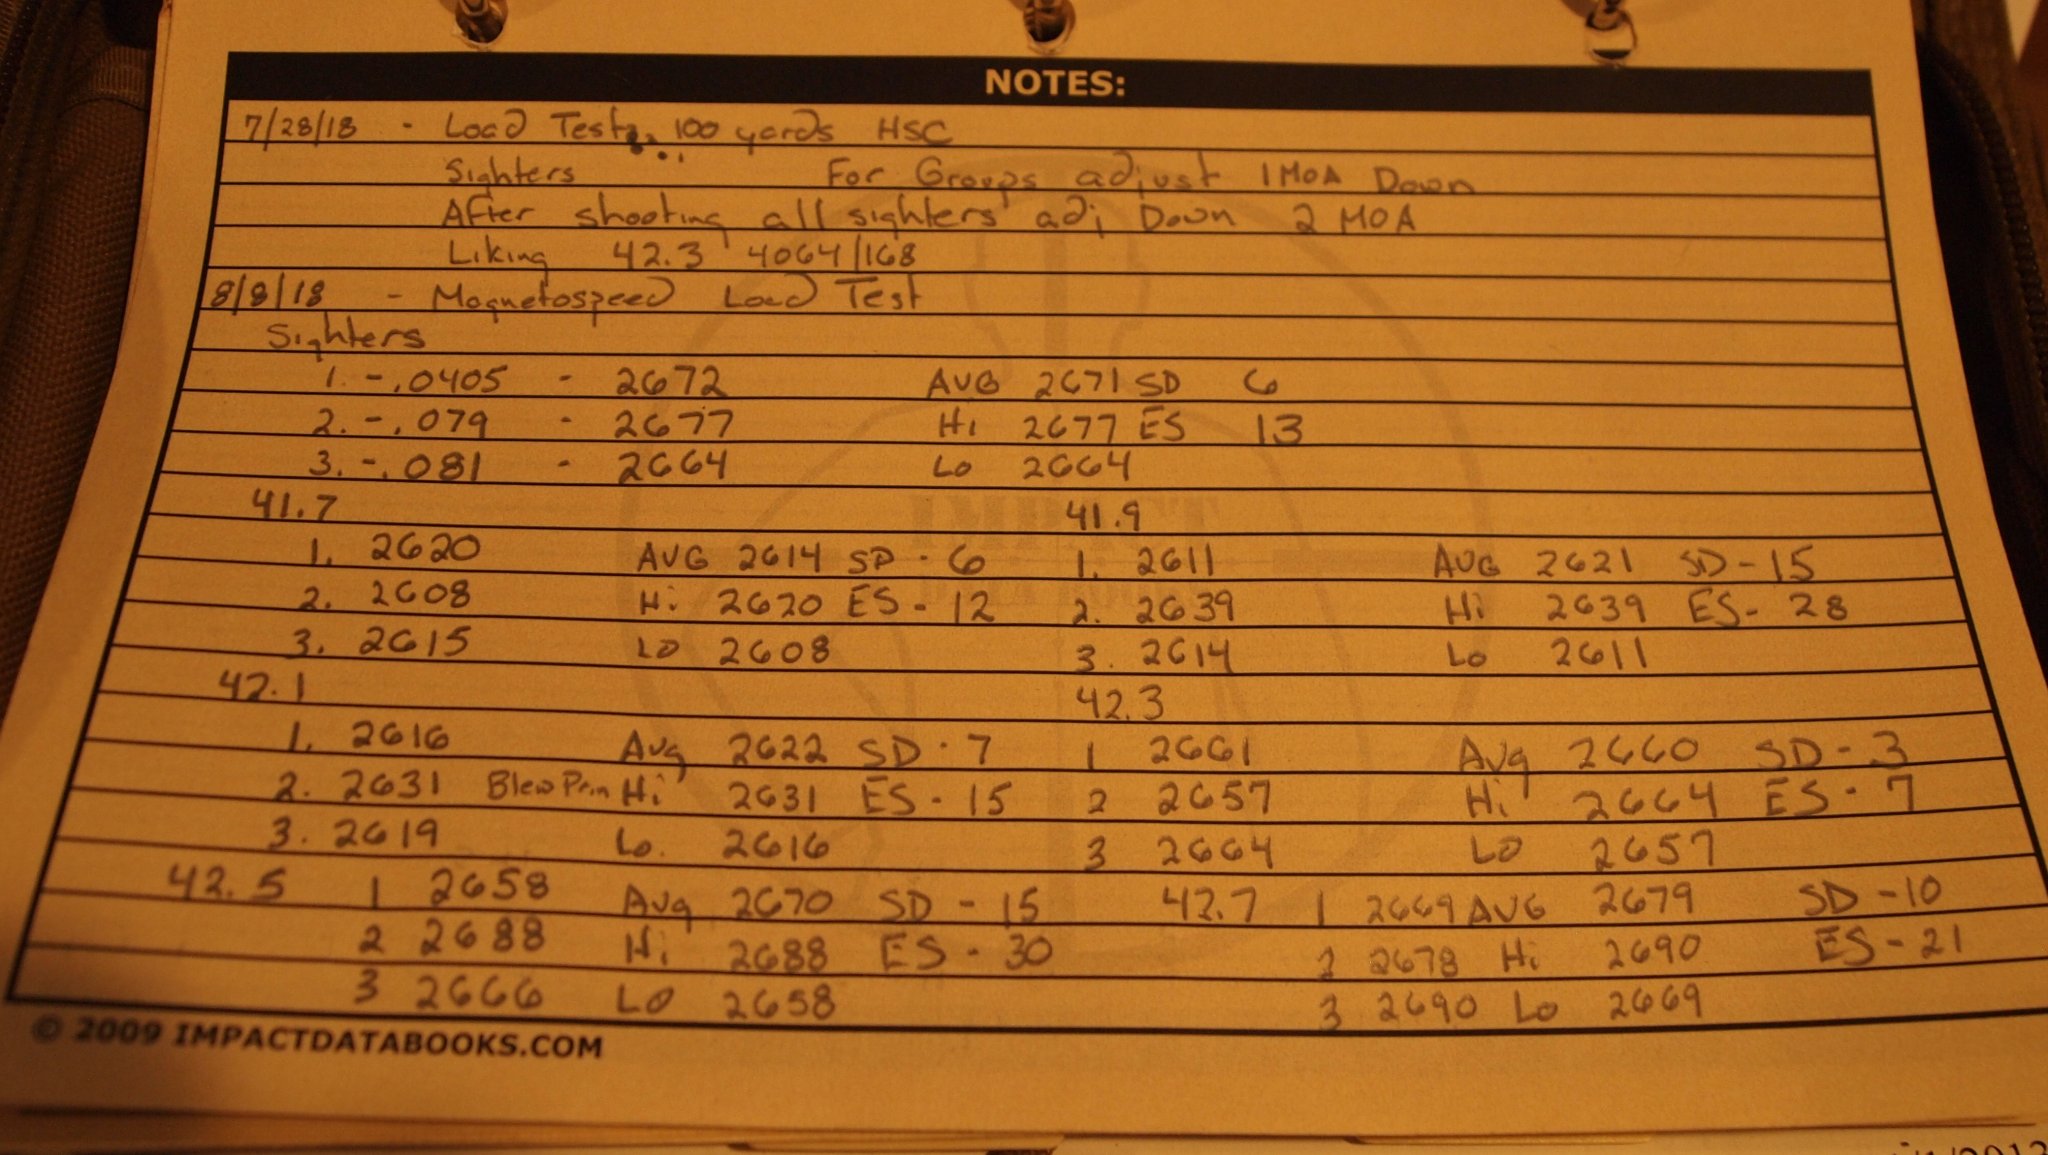 NOTES:
7/28/18 - Load Test 100 yards HSC
Sighters For Groups adjust 1 MOA Down
After shooting all sighters adj Down 2 MOA
Liking 42.3 4064/168
8/8/18 - Magnetospeed Load Test
Sighters
1. -.0405 - 2672 AVG 2671 SD 6
2. -.079 - 2677 Hi 2677 ES 13
3. -.081 - 2664 Lo 2664
41.7 41.9
1. 2620 AVG 2614 SD - 6 1. 2611 AVG 2621 SD - 15
2. 2608 Hi 2620 ES - 12 2. 2639 Hi 2639 ES - 28
3. 2615 LO 2608 3. 2614 Lo 2611
42.1 42.3
1. 2616 Avg 2622 SD - 7 1 2661 Avg 2660 SD - 3
2. 2631 Blew Prim Hi 2631 ES - 15 2 2657 Hi 2664 ES - 7
3. 2619 Lo. 2616 3 2664 LO 2657
42.5 1 2658 Avg 2670 SD - 15 42.7 1 2669 AVG 2679 SD - 10
2 2688 Hi 2688 ES - 30 2 2678 Hi 2690 ES - 21
3 2666 LO 2658 3 2690 Lo 2669
© 2009 IMPACTDATABOOKS.COM